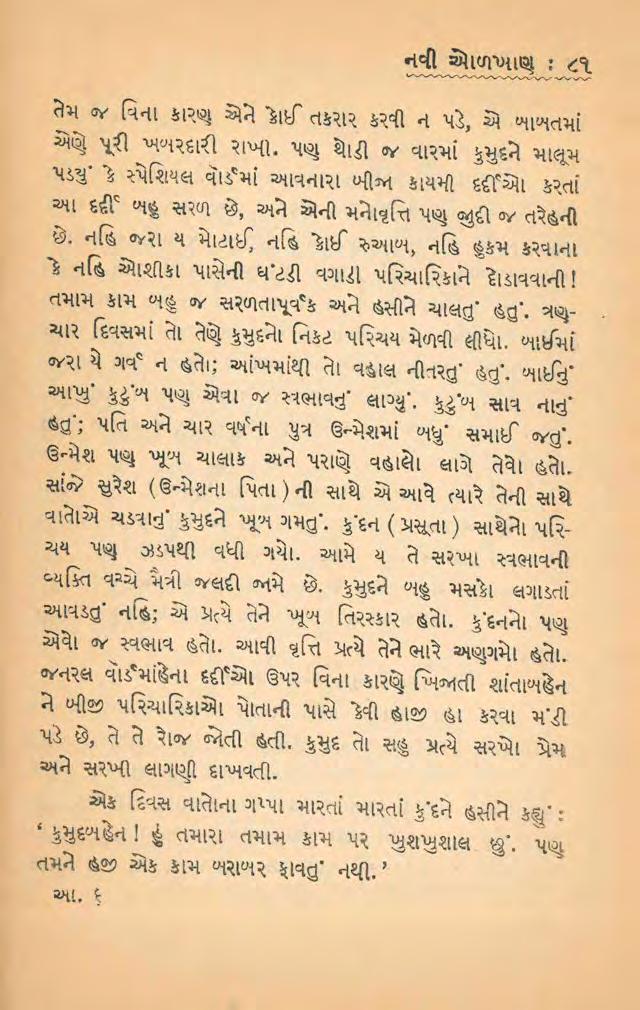 નવી ઓળખાણ : ૮૧
તેમ જ વિના કારણ એને કોઈ તકરાર કરવી ન પડે, એ બાબતમાં
એણે પૂરી ખબરદારી રાખી. પણ થોડી જ વારમાં કુમુદને માલૂમ
પડયું કે સ્પેશિયલ વૉર્ડમાં આવનારા બીજા કાયમી દર્દીઓ કરતાં
આ દર્દી બહુ સરળ છે, અને એની મનોવૃત્તિ પણ જુદી જ તરેહની
છે. નહિ જરા ય મોટાઈ, નહિ કોઈ રુઆબ, નહિ હુકમ કરવાના
કે નહિ ઓશીકા પાસેની ઘંટડી વગાડી પરિચારિકાને દોડાવવાની!
તમામ કામ બહુ જ સરળતાપૂર્વક અને હસીને ચાલતું હતું. ત્રણ-
ચાર દિવસમાં તો તેણે કુમુદનો નિકટ પરિચય મેળવી લીધો. બાઈમાં
જરા યે ગર્વ ન હતો; આંખમાંથી તો વહાલ નીતરતું હતું. બાઈનું
આખું કુટુંબ પણ એવા જ સ્વભાવનું લાગ્યું. કુટુંબ સાવ નાનું
હતું; પતિ અને ચાર વર્ષના પુત્ર ઉન્મેશમાં બધું સમાઈ જતું.
ઉન્મેશ પણ ખૂબ ચાલાક અને પરાણે વહાલો લાગે તેવો હતો.
સાંજે સુરેશ (ઉન્મેશના પિતા)ની સાથે એ આવે ત્યારે તેની સાથે
વાતોએ ચડવાનું કુમુદને ખૂબ ગમતું. કુંદન (પ્રસૂતા) સાથેનો પરિ-
ચય પણ ઝડપથી વધી ગયો. આમે ય તે સરખા સ્વભાવની
વ્યક્તિ વચ્ચે મૈત્રી જલદી જામે છે. કુમુદને બહુ મસકો લગાડતાં
આવડતું નહિ; એ પ્રત્યે તેને ખૂબ તિરસ્કાર હતો. કુંદનનો પણ
એવો જ સ્વભાવ હતો. આવી વૃત્તિ પ્રત્યે તેને ભારે અણગમો હતો.
જનરલ વૉર્ડમાંહેના દર્દીઓ ઉપર વિના કારણે ખિજાતી શાંતાબહેન
ને બીજી પરિચારિકાઓ પોતાની પાસે કેવી હાજી હા કરવા મંડી
પડે છે, તે તે રોજ જોતી હતી. કુમુદ તો સહુ પ્રત્યે સરખો પ્રેમ
અને સરખી લાગણી દાખવતી.
એક દિવસ વાતોના ગપ્પા મારતાં મારતાં કુંદને હસીને કહ્યું :
‘ કુમુદબહેન! હું તમારા તમામ કામ પર ખુશખુશાલ છું. પણ
તમને હજી એક કામ બરાબર ફાવતું નથી.’
આ. ૬